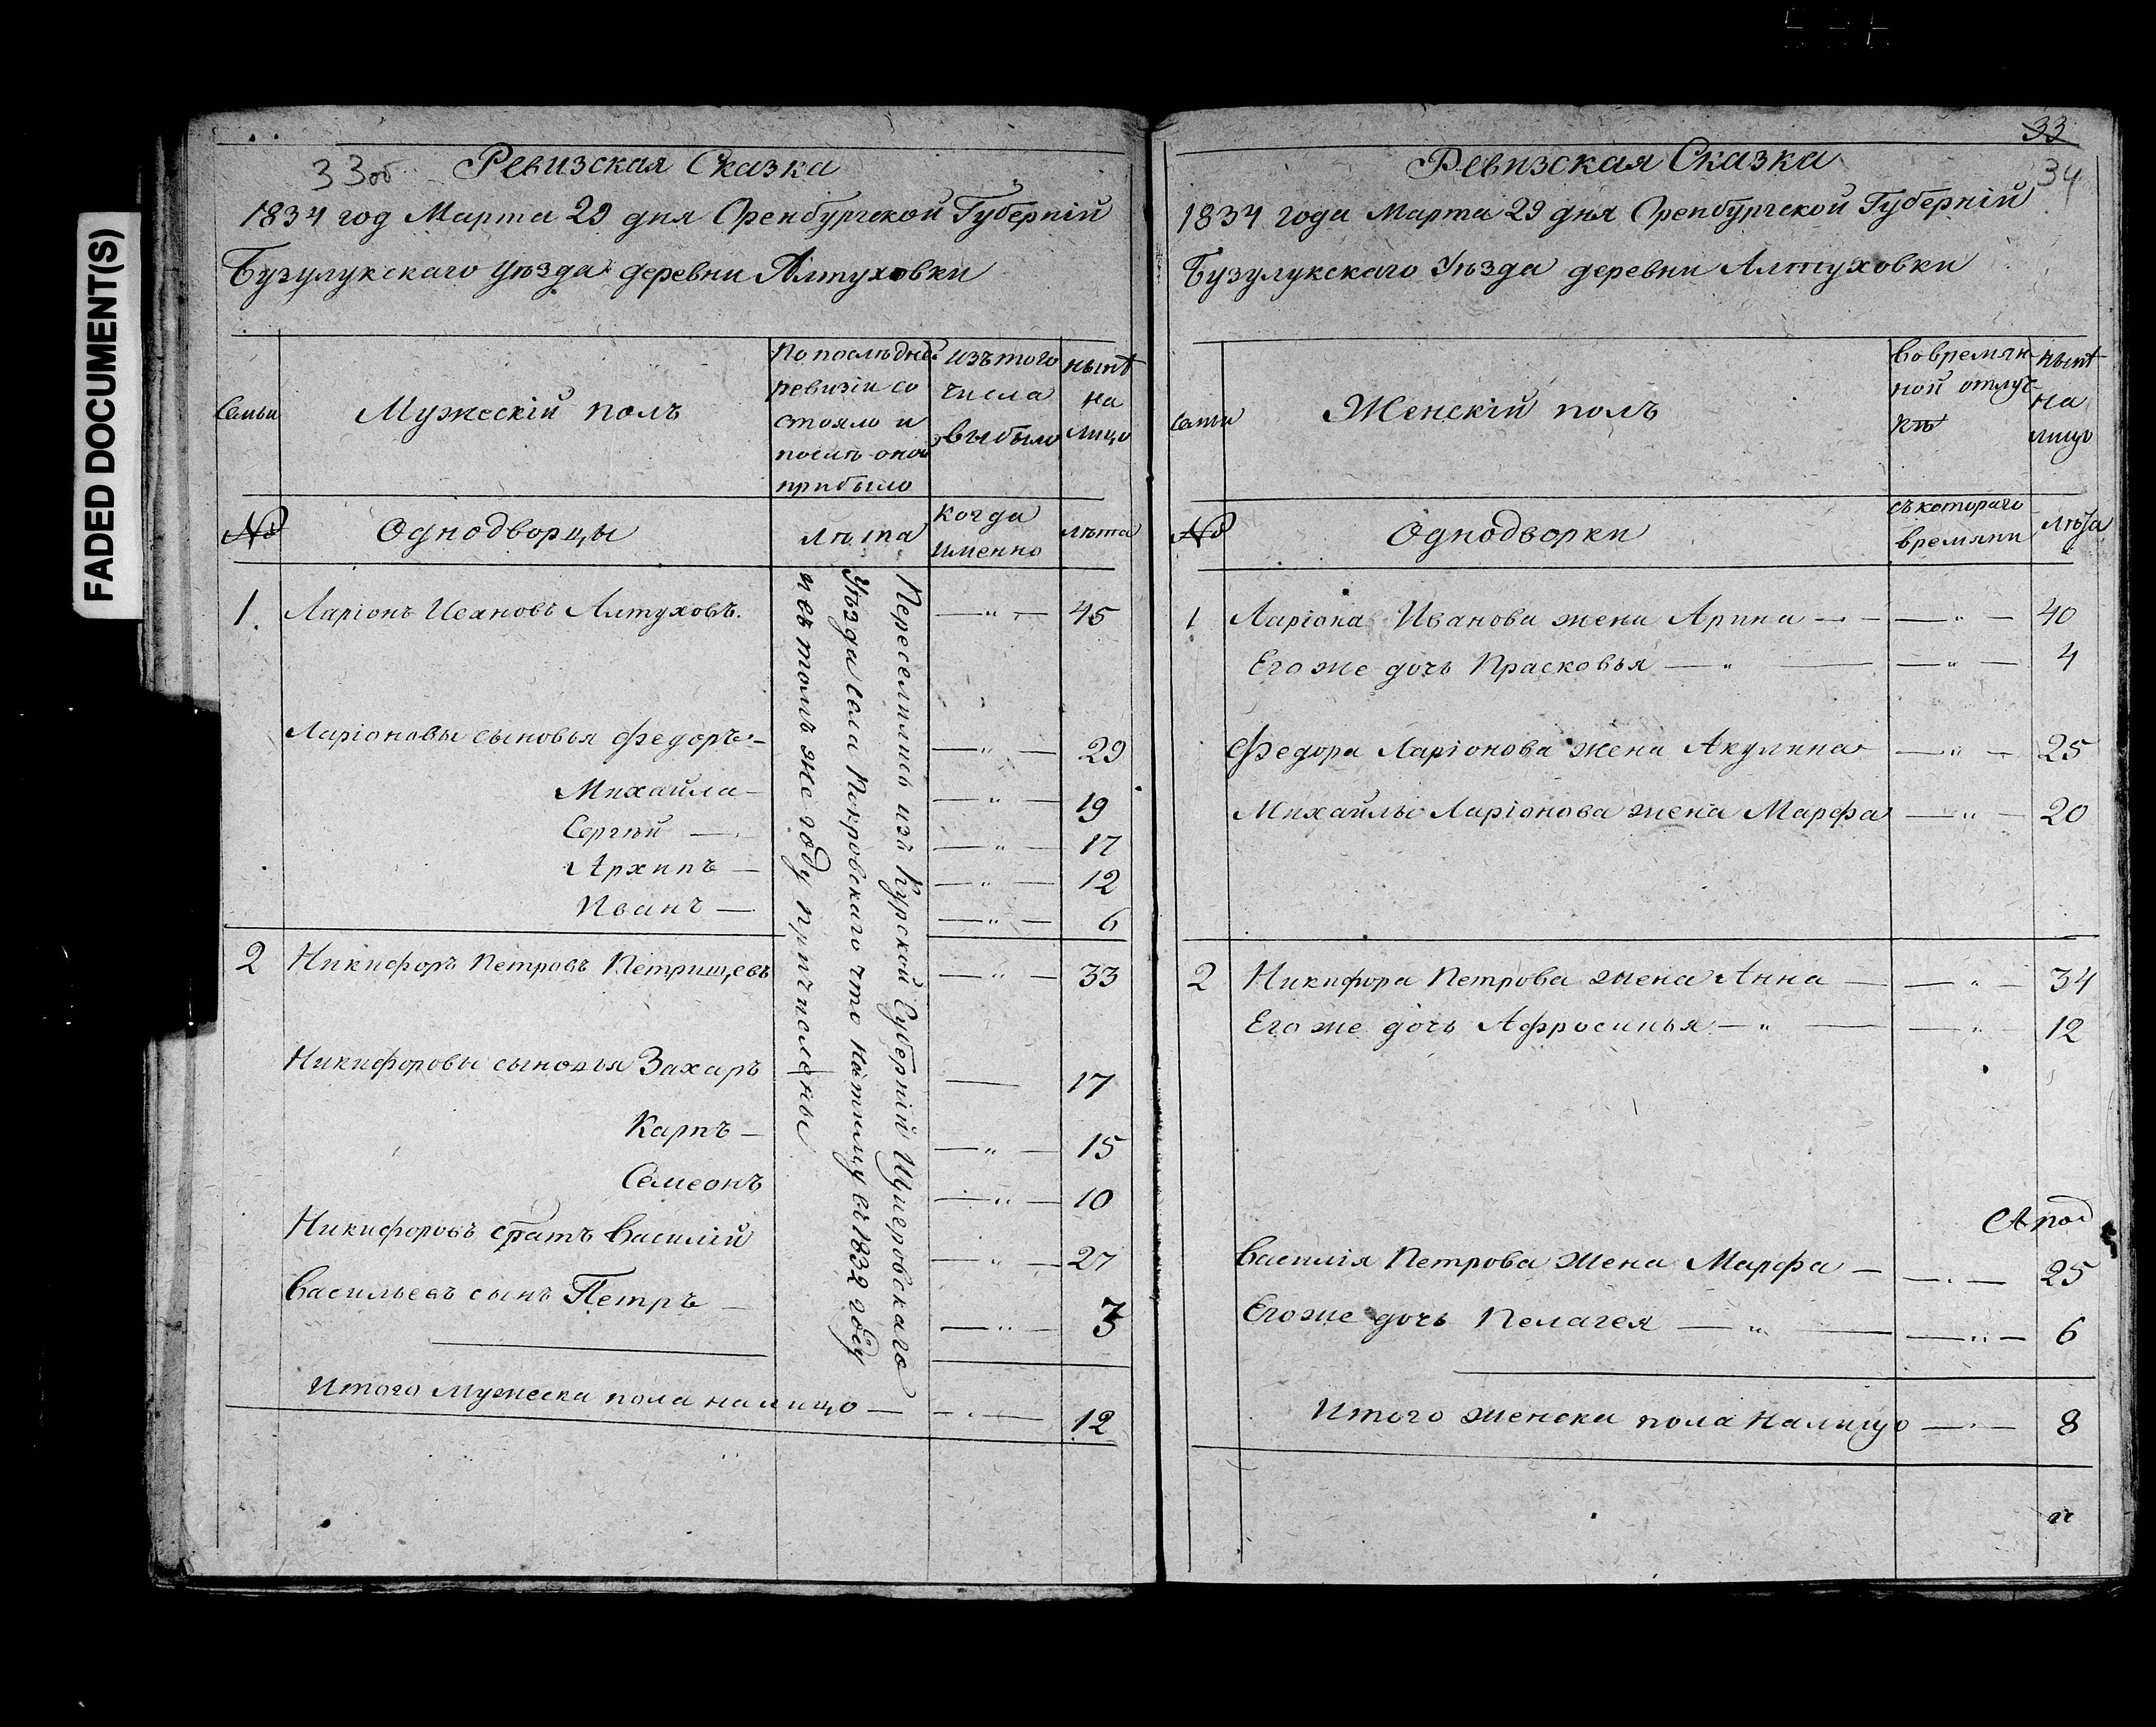 FADED DOCUMENT(S)
33об
Ревизская Сказка
1834 год Марта 29 дня Оренбургской Губерній
Бузулукскаго уѣзда деревни Алтуховки
Семьи
Мужескій полъ
По послѣдней
ревизіи со
стояло и
послѣ оной
прибыло
изътого
числа
выбыло
нынѣ
на
лицо
№
Однодворцы
лѣта
когда
именно
лѣта
1. Ларіонъ Ивановъ Алтуховъ. — „ — 45
Ларіоновы сыновья Федоръ — — „ — 29
Михайла — — „ — 19
Сергѣй — — „ — 17
Архипъ — — „ — 12
Иванъ — — „ — 6
2 Никифоръ Петровъ Петрищевъ — „ — 33
Никифоровы сыновья Захаръ — 17
Карпъ — — „ — 15
Семеонъ — „ — 10
Никифоровъ братъ Василій — „ — 27
Васильевъ сынъ Петръ — — „ — 3
Переселились изъ Курской Губерній Щигровскаго
Уѣзда села Покровскаго что на тиму въ 1832 году
и въ томъ же году причислены
Итого мужеска пола налицо — — „ — 12
33
34
Ревизская Сказка
1834 года Марта 29 дня Оренбургской Губерній
Бузулукскаго Уѣзда деревни Алтуховки
Семьи
Женскій полъ
Во времян
ной отлуч
кѣ
нынѣ
на
лицо
№
Однодворки
съ котораго
времяни
лѣта
1 Ларіона Иванова жена Арина — — — „ — 40
Его же дочь Прасковья — „ — — „ — 4
Федора Ларіонова жена Акулина — „ — 25
Михайлы Ларіонова жена Марфа — „ — 20
2 Никифора Петрова жена Анна — — „ — 34
Его же дочь Афросинья — „ — — „ 12
Василія Петрова жена Марфа — — „ — 25
Его же дочь Пелагея — „ — — „ — 6
Итого женска пола налицо — „ — 8